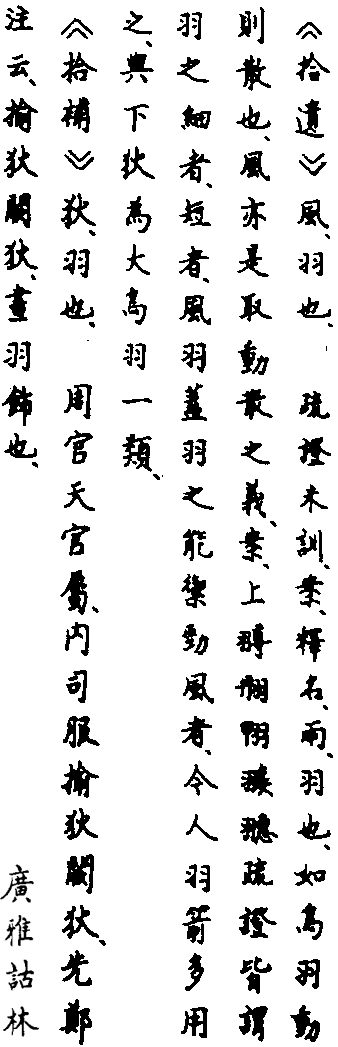 《拾遺》風、羽也、　疏證未訓、案、釋名、雨、羽也、如鳥羽動
則散也、風亦是取動散之義、案、上翈翭疏證皆謂
羽之細者、短者、風羽蓋羽之能禦勁風者、今人羽箭多用
之、與下狄為大鳥羽一類、
《拾補》狄、羽也、　周官天官屬、内司服揄狄闕狄、先鄭
注云、揄狄闕狄、畫羽飾也、
廣雅詁林